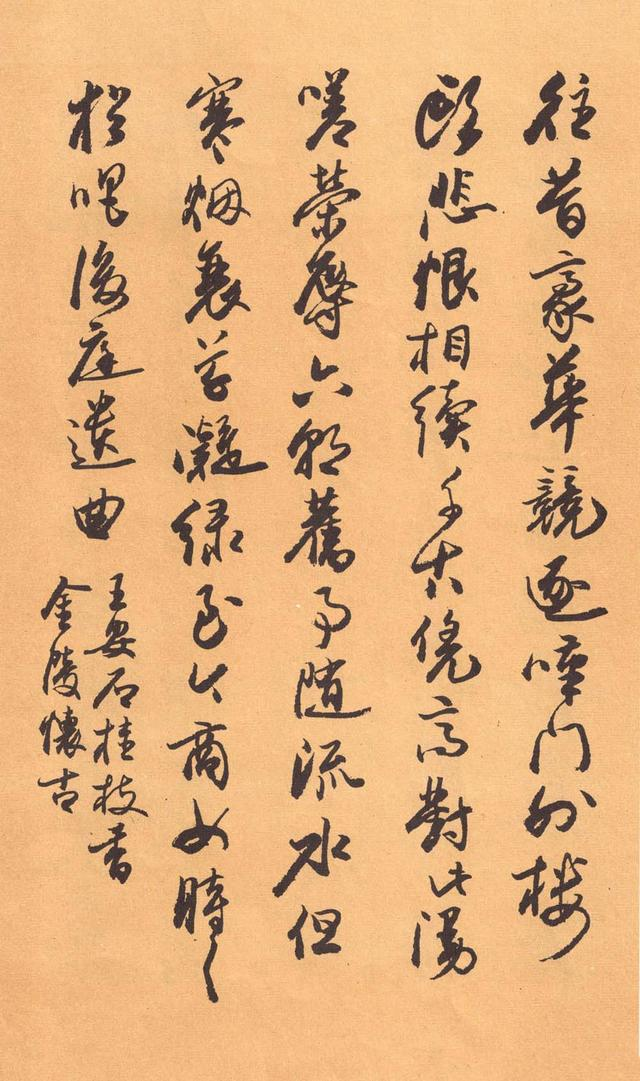 往昔豪華競逐嘆門外楼
頭悲恨相續千古凭高對此漫
嗟榮辱六朝舊事随流水但
寒烟衰草凝绿至今商女時々
猶唱後庭遺曲
王安石桂枝香
金陵懷古